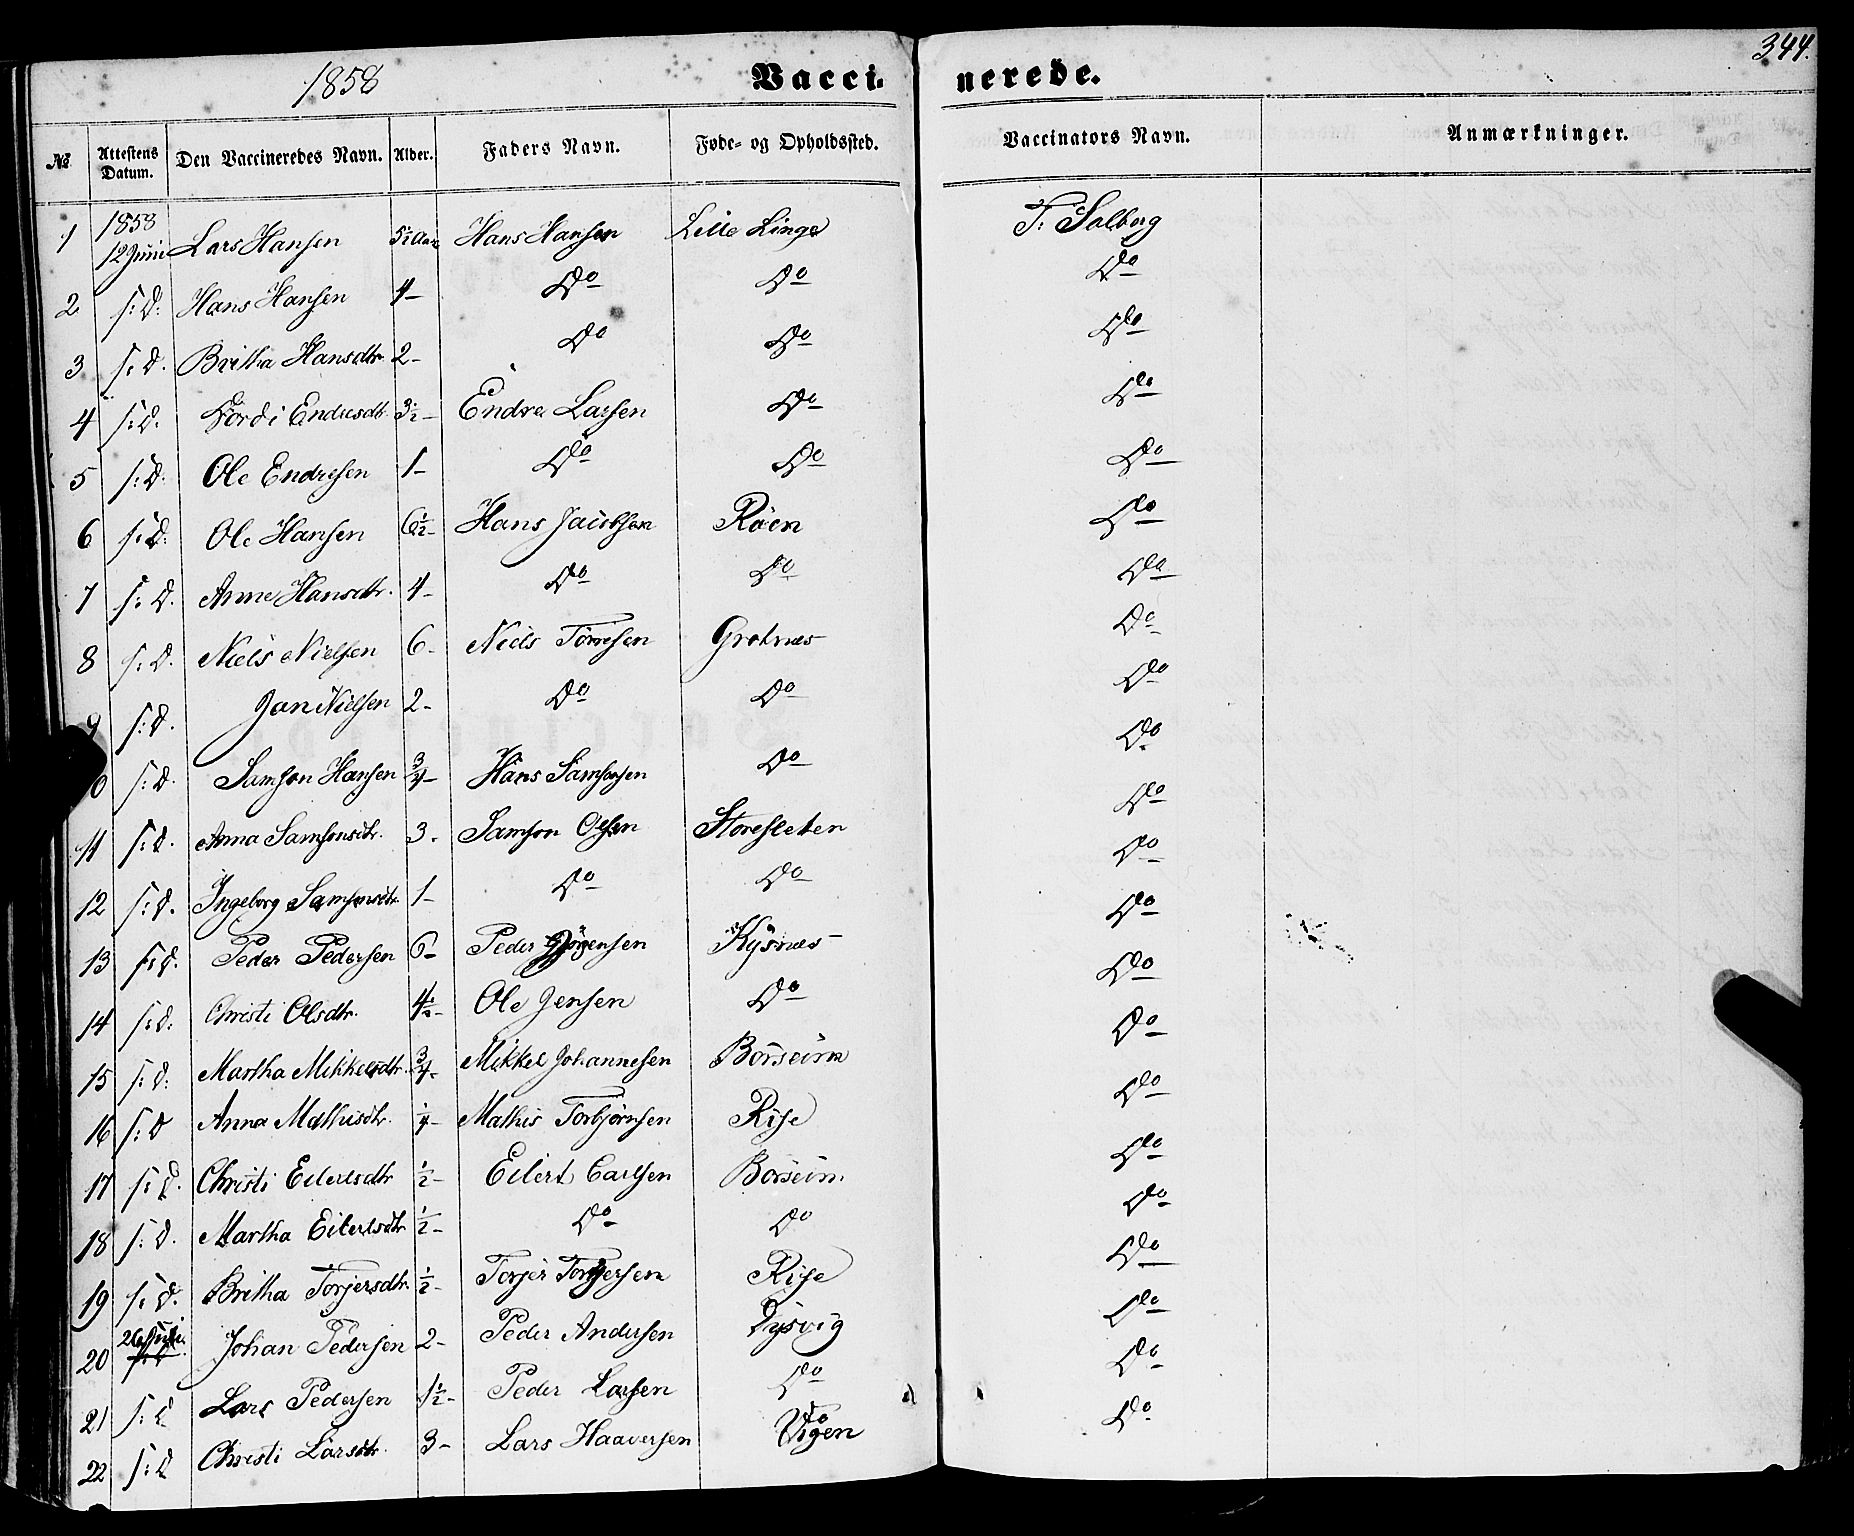 344.
1858 Vaccinerede.
No Attestens Datum. Den Vaccineredes Navn. Alder. Faders Navn. Føde- og Opholdssted. Vaccinators Navn. Anmærkninger.
1 1858 12 Juni Lars Hansen 5½ Aar Hans Hansen Lille Linge T. Solberg
2 s: D: Hans Hansen 4- Do Do Do
3 s: D. Britha Hansdtr. 2- Do Do Do
4 s: D. Gordi Endresdtr. 3½- Endre Larsen Do Do
5 s: D. Ole Endresen 1- Do Do Do
6 s: D: Ole Hansen 6½- Hans Jacobsen Røen Do
7 s: D. Anne Hansdtr. 4- Do Do Do
8 s: D. Niels Nielsen 6- Niels Tørresen Grotnæs Do
9 s: D. Jan Nielsen 2- Do Do Do
0 s: D. Samson Hansen ¾- Hans Samsonsen Do Do
11 s: D. Anna Samsonsdtr. 3- Samson Olsen Storesleten Do
12 s: D. Ingeborg Samsonsdtr. 1- Do Do Do
13 s: D. Peder Pedersen 6- Peder Jørgensen Kysnæs Do
14 s: D. Christi Olsdtr. 4½- Ole Jensen Do Do
15 s: D: Martha Mikkelsdtr. ¾- Mikkel Johannesen Børseim Do
16 s: D Anna Mathisdtr. ¼- Mathis Torbjørnsen Rise Do
17 s: D. Christi Eilertsdtr ½- Eilert Carlsen Børseim Do
18 s: D. Martha Eilertsdtr. ½- Do Do Do
19 s: D. Britha Torjersdtr. ½- Torjer Torgersen Rise Do
20 26 Juli Johan Pedersen 2- Peder Andersen Dysvig Do
21 s: D Lars Pedersen 1½- Peder Larsen Do Do
22 s: D Christi Larsdtr. 3- Lars Haaversen Vigen Do